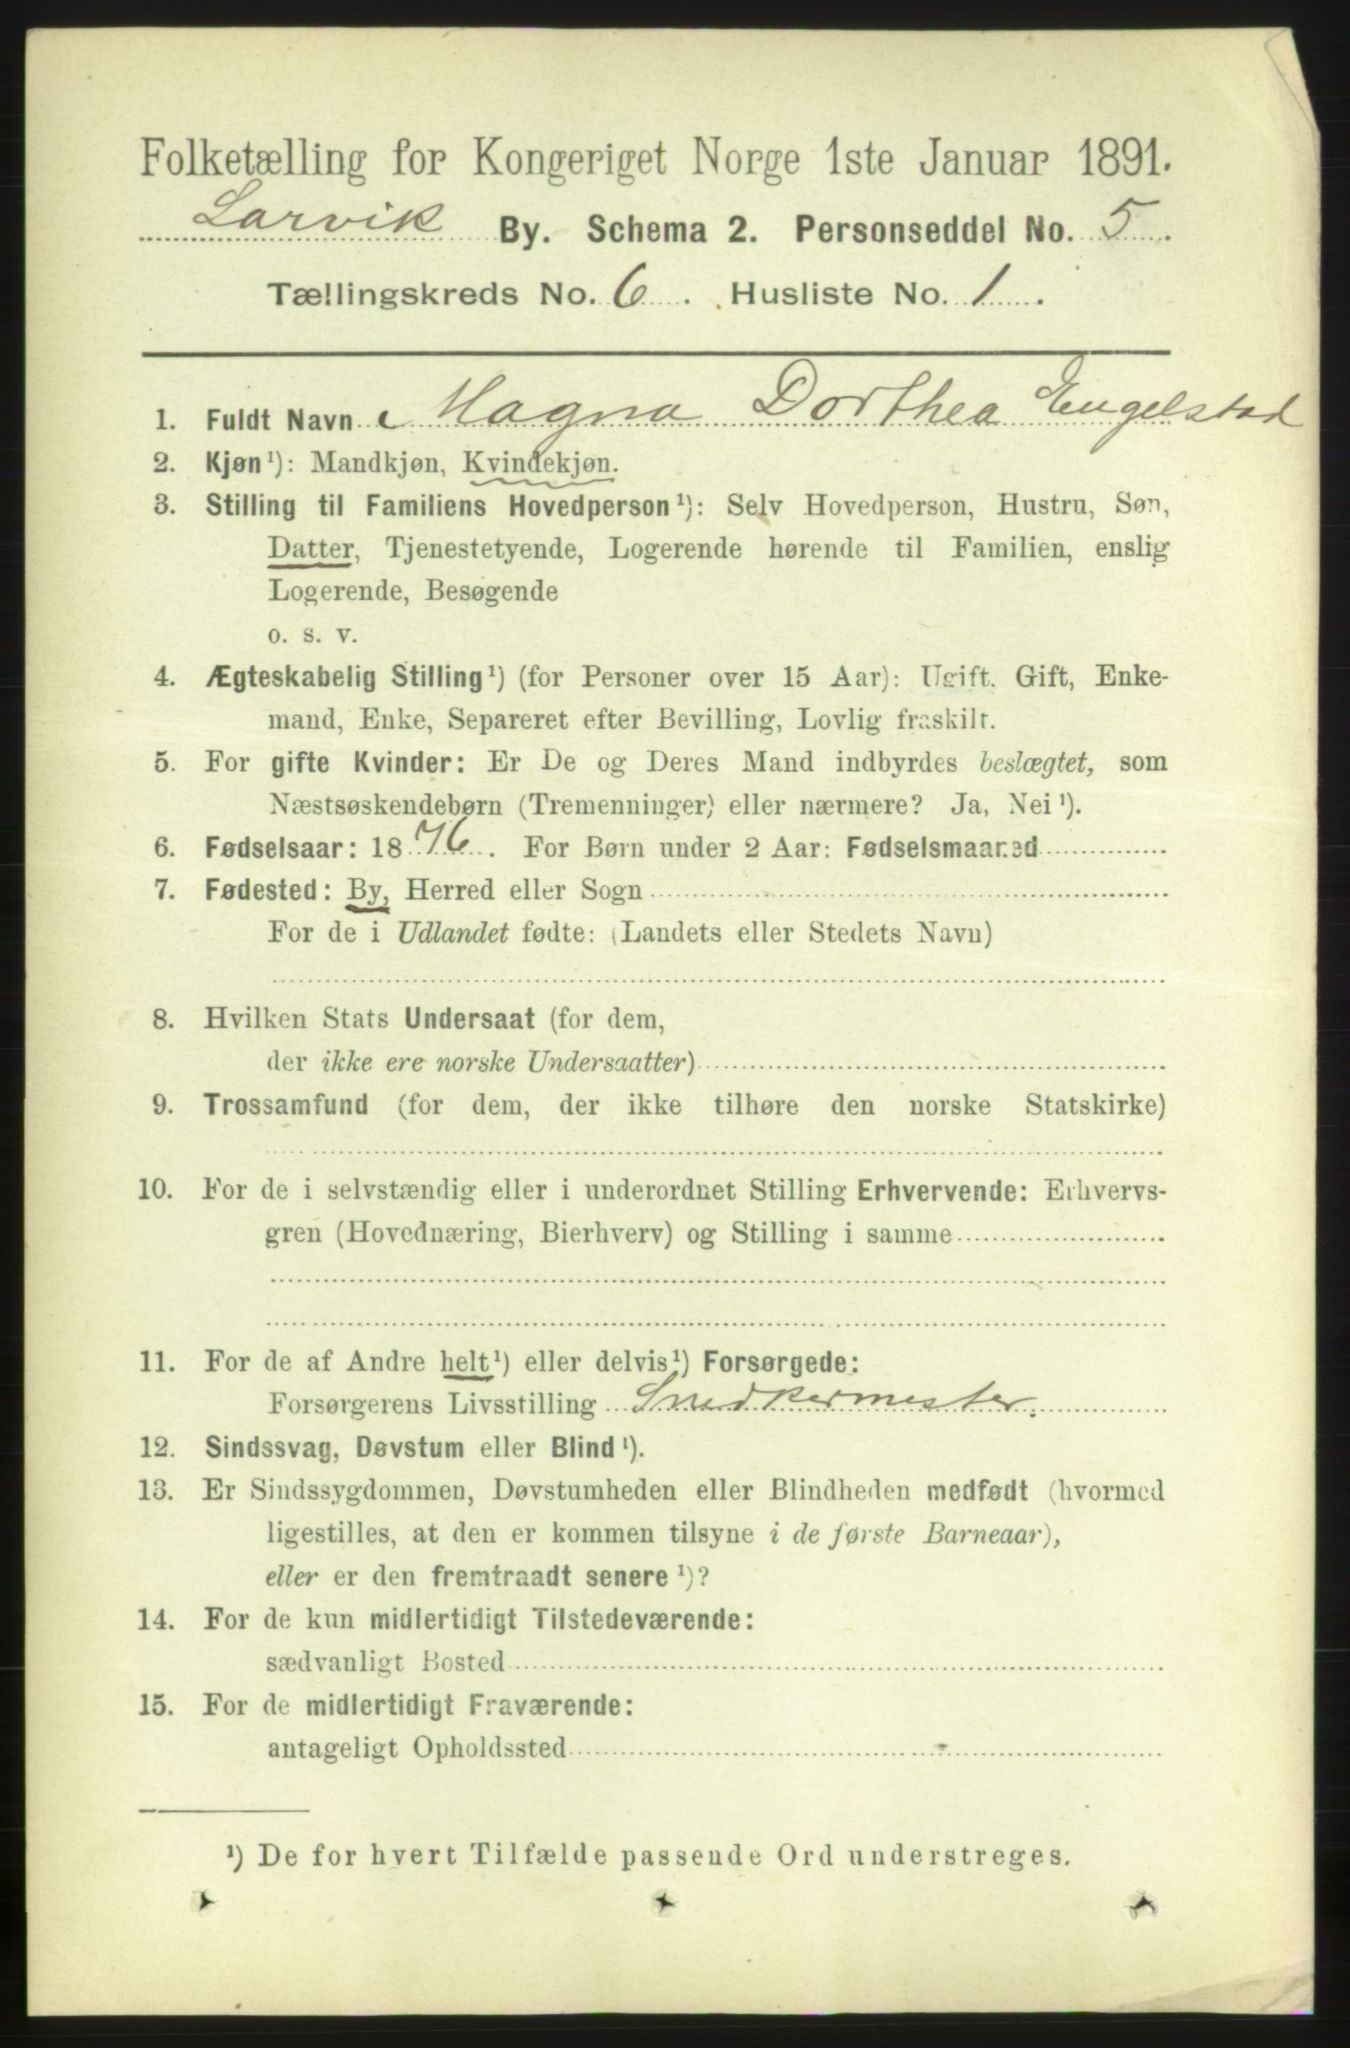 Folketælling for Kongeriget Norge 1ste Januar 1891.
Larvik By. Schema 2. Personseddel No. 5.
Tællingskreds No. 6. Husliste No. 1.
1. Fuldt Navn Magna Dorthea Engelstad
2. Kjøn¹): Mandkjøn, Kvindekjøn.
3. Stilling til Familiens Hovedperson¹): Selv Hovedperson, Hustru, Søn,
Datter, Tjenestetyende, Logerende hørende til Familien, enslig
Logerende, Besøgende
o. s. v.
4. Ægteskabelig Stilling¹) (for Personer over 15 Aar): Ugift. Gift, Enke-
mand, Enke, Separeret efter Bevilling, Lovlig fraskilt.
5. For gifte Kvinder: Er De og Deres Mand indbyrdes beslægtet, som
Næstsøskendebørn (Tremenninger) eller nærmere? Ja, Nei¹).
6. Fødselsaar: 1876. For Børn under 2 Aar: Fødselsmaaned
7. Fødested: By, Herred eller Sogn
For de i Udlandet fødte: (Landets eller Stedets Navn)
8. Hvilken Stats Undersaat (for dem,
der ikke ere norske Undersaatter)
9. Trossamfund (for dem, der ikke tilhøre den norske Statskirke)
10. For de i selvstændig eller i underordnet Stilling Erhvervende: Erhvervs-
gren (Hovednæring, Bierhverv) og Stilling i samme
11. For de af Andre helt¹) eller delvis¹) Forsørgede:
Forsørgerens Livsstilling Snedkermester.
12. Sindssvag, Døvstum eller Blind¹).
13. Er Sindssygdommen, Døvstumheden eller Blindheden medfødt (hvormed
ligestilles, at den er kommen tilsyne i de første Barneaar),
eller er den fremtraadt senere¹)?
14. For de kun midlertidigt Tilstedeværende:
sædvanligt Bosted
15. For de midlertidigt Fraværende:
antageligt Opholdssted
¹) De for hvert Tilfælde passende Ord understreges.